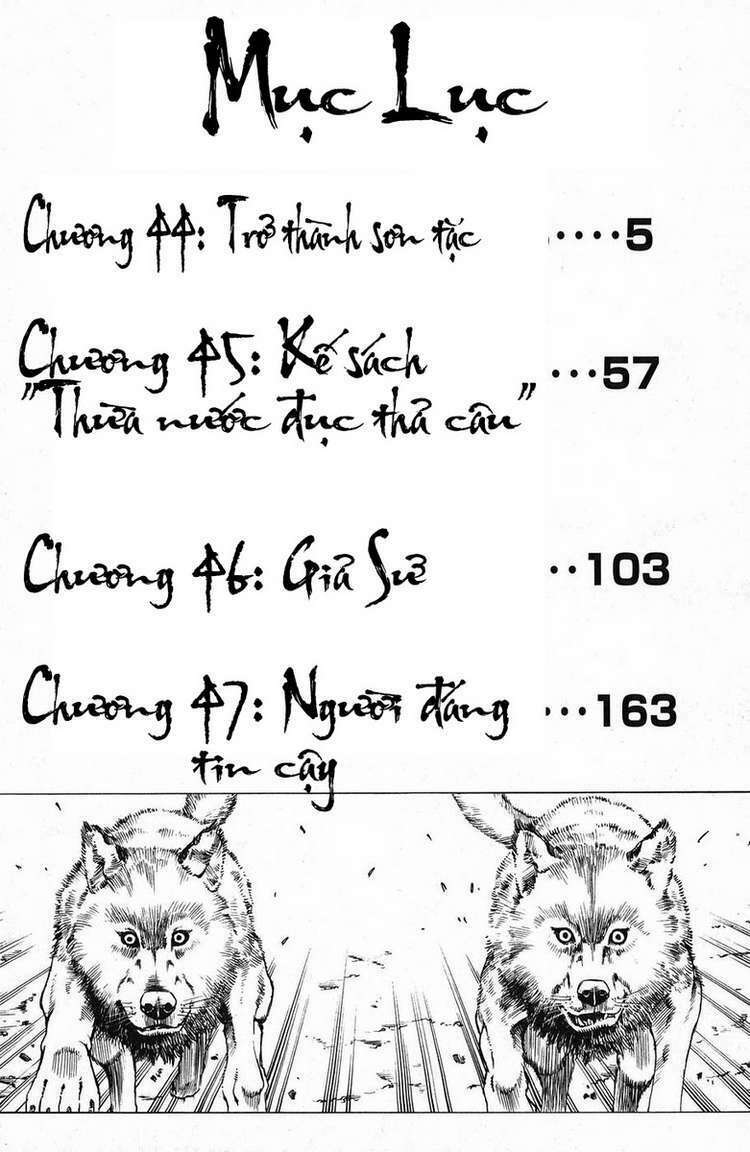 Mục Lục
Chương 44: Trở thành sơn tặc ····5
Chương 45: Kế sách ···57
"Thừa nước đục thả câu"
Chương 46: Giả Sử ··103
Chương 47: Người đáng ···163
tin cậy